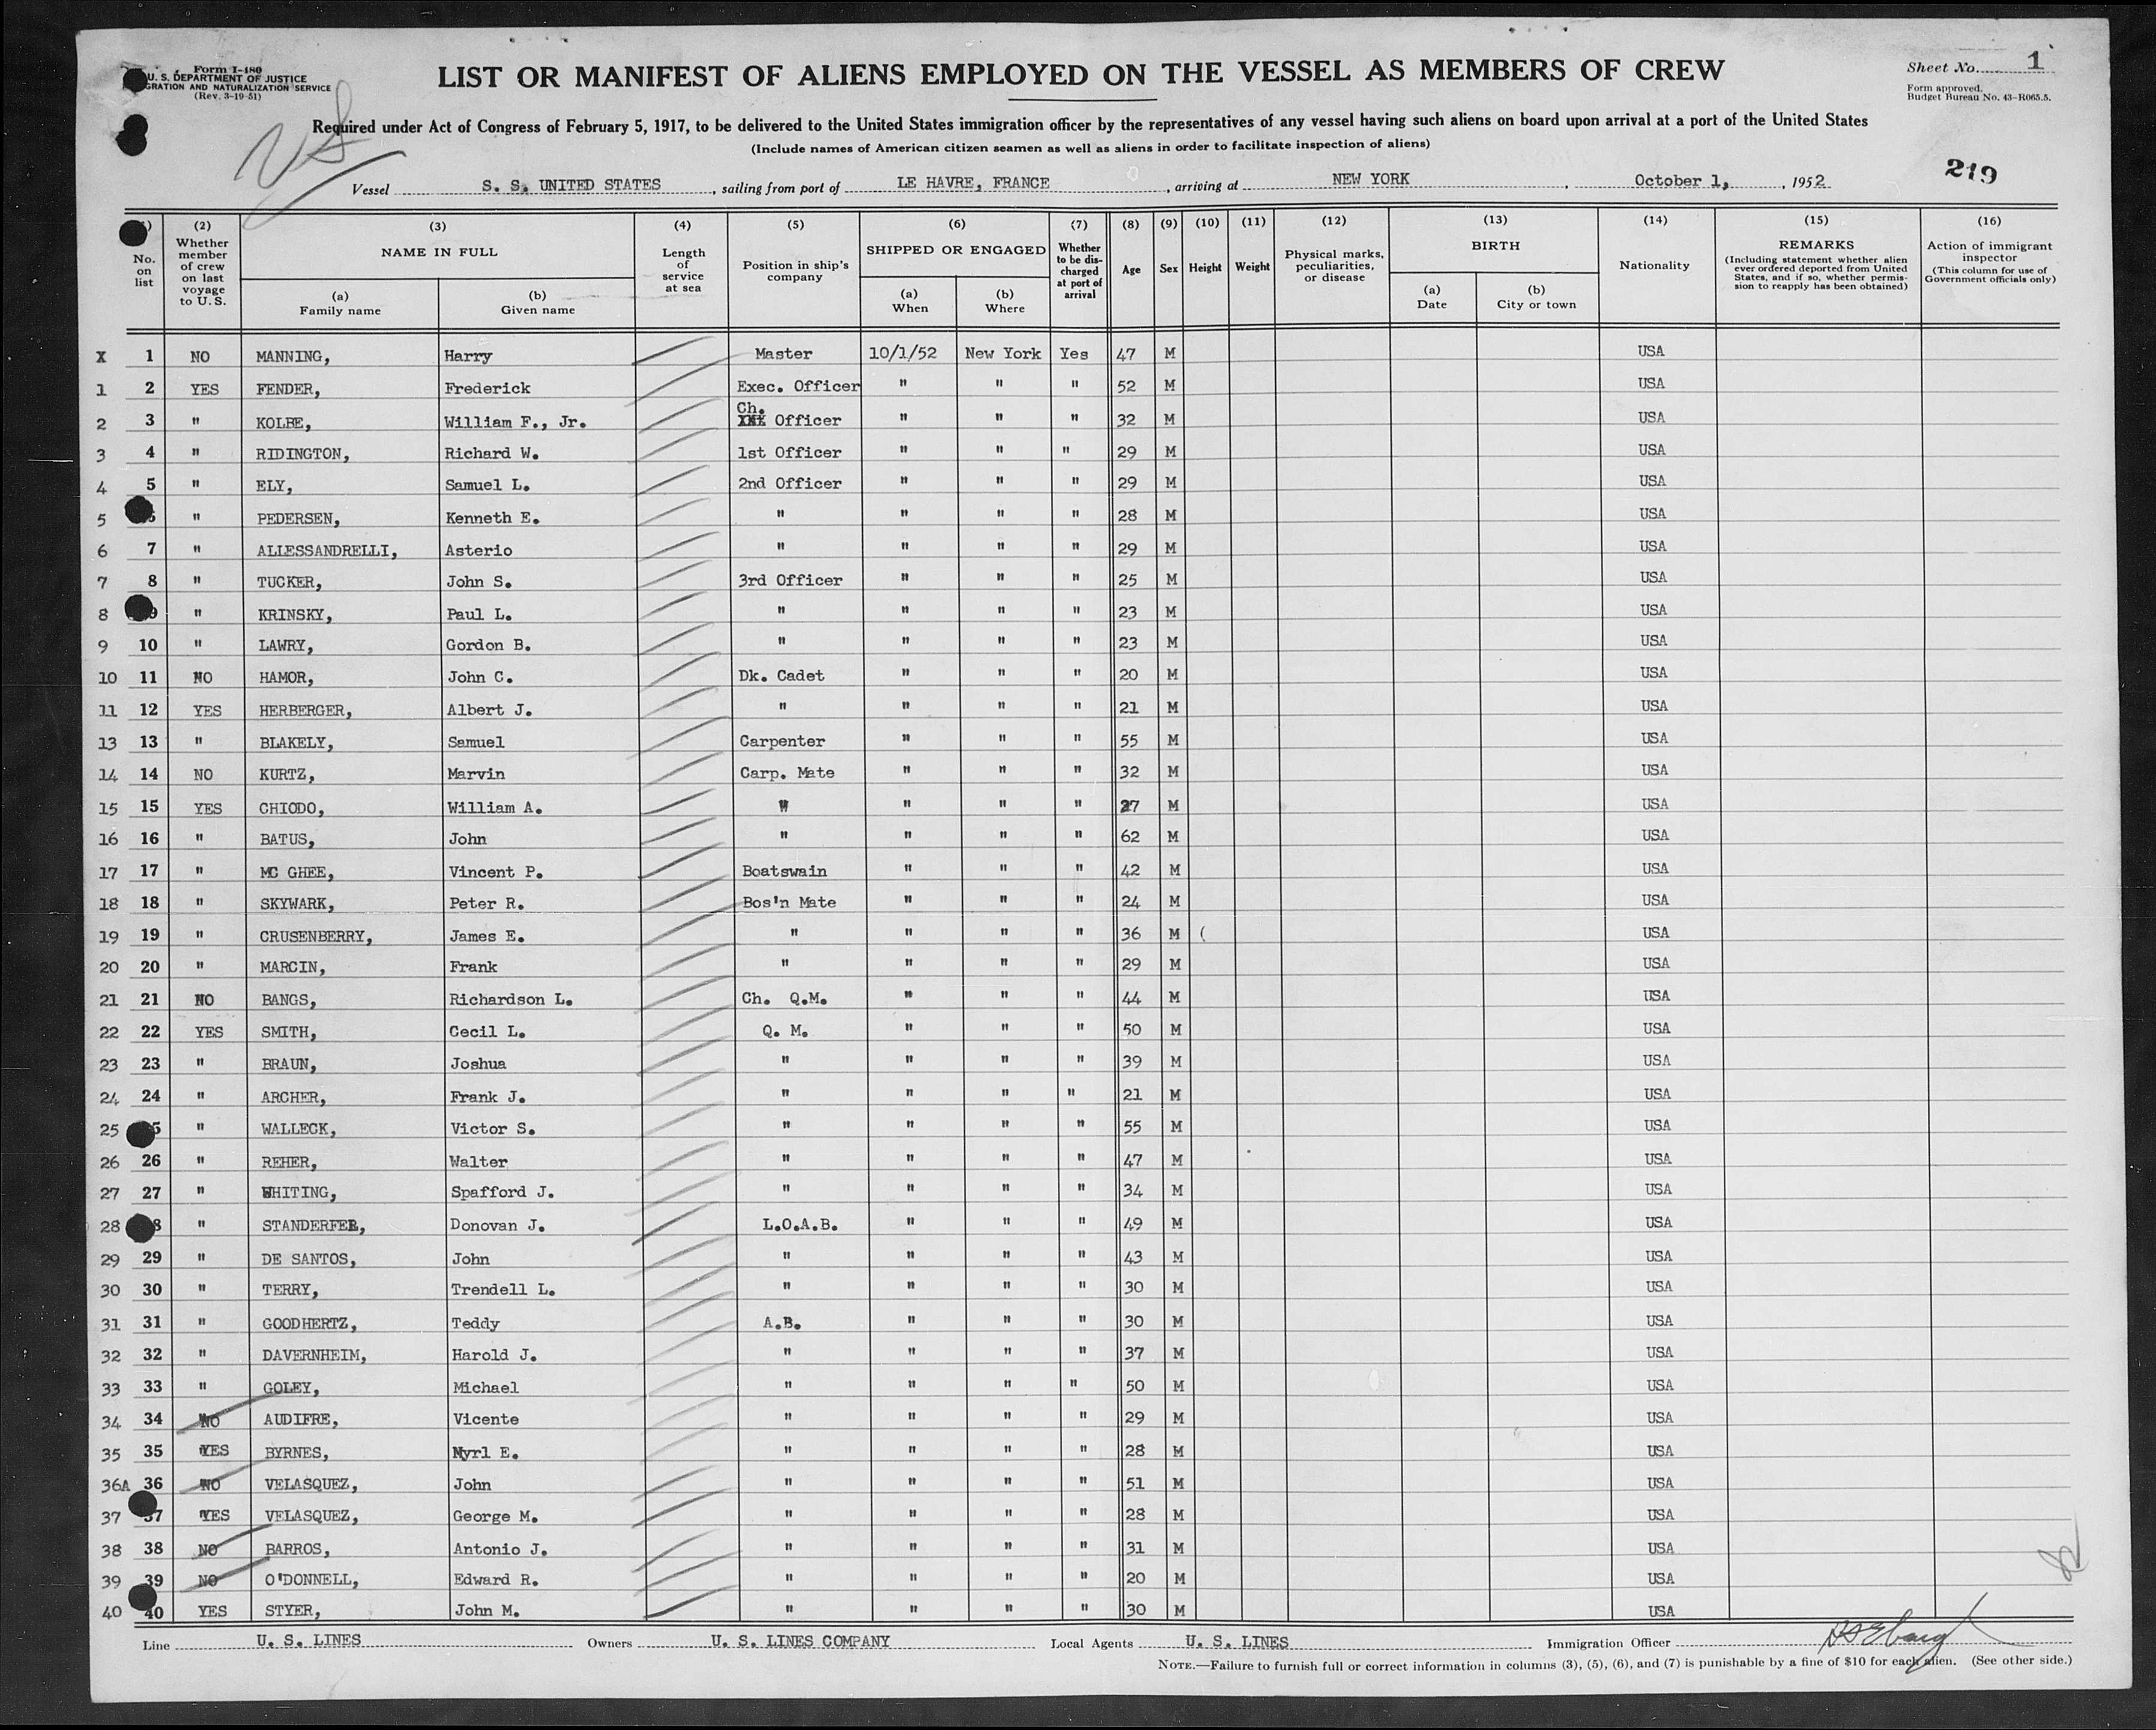 Form I-480
U. S. DEPARTMENT OF JUSTICE
GRATION AND NATURALIZATION SERVICE
(Rev. 3-19-51)
LIST OR MANIFEST OF ALIENS EMPLOYED ON THE VESSEL AS MEMBERS OF CREW
Sheet No. 1
Form approved.
Budget Bureau No. 43-R065.5.
Required under Act of Congress of February 5, 1917, to be delivered to the United States immigration officer by the representatives of any vessel having such aliens on board upon arrival at a port of the United States
(Include names of American citizen seamen as well as aliens in order to facilitate inspection of aliens)
219
Vessel S. S. UNITED STATES, sailing from port of LE HAVRE, FRANCE, arriving at NEW YORK, October 1, 1952
(2) Whether member of crew on last voyage to U. S.
No. on list
(3) NAME IN FULL (a) Family name (b) Given name
(4) Length of service at sea
(5) Position in ship's company
(6) SHIPPED OR ENGAGED (a) When (b) Where
(7) Whether to be discharged at port of arrival
(8) Age
(9) Sex
(10) Height
(11) Weight
(12) Physical marks, peculiarities, or disease
(13) BIRTH (a) Date (b) City or town
(14) Nationality
(15) REMARKS (Including statement whether alien ever ordered deported from United States, and if so, whether permission to reapply has been obtained)
(16) Action of immigrant inspector (This column for use of Government officials only)
X 1 NO MANNING, Harry Master 10/1/52 New York Yes 47 M USA
1 2 YES FENDER, Frederick Exec. Officer " " " 52 M USA
2 3 " KOLBE, William F., Jr. Ch. Officer " " " 32 M USA
3 4 " RIDINGTON, Richard W. 1st Officer " " " 29 M USA
4 5 " ELY, Samuel L. 2nd Officer " " " 29 M USA
5 " PEDERSEN, Kenneth E. " " " " 28 M USA
6 7 " ALLESSANDRELLI, Asterio " " " " 29 M USA
7 8 " TUCKER, John S. 3rd Officer " " " 25 M USA
8 9 " KRINSKY, Paul L. " " " " 23 M USA
9 10 " LAWRY, Gordon B. " " " " 23 M USA
10 11 NO HAMOR, John C. Dk. Cadet " " " 20 M USA
11 12 YES HERBERGER, Albert J. " " " " 21 M USA
13 13 " BLAKELY, Samuel Carpenter " " " 55 M USA
14 14 NO KURTZ, Marvin Carp. Mate " " " 32 M USA
15 15 YES CHIODO, William A. " " " " 27 M USA
16 16 " BATUS, John " " " " 62 M USA
17 17 " MC GHEE, Vincent P. Boatswain " " " 42 M USA
18 18 " SKYWARK, Peter R. Bos'n Mate " " " 24 M USA
19 19 " CRUSENBERRY, James E. " " " " 36 M ( USA
20 20 " MARCIN, Frank " " " " 29 M USA
21 21 NO BANGS, Richardson L. Ch. Q.M. " " " 44 M USA
22 22 YES SMITH, Cecil L. Q. M. " " " 50 M USA
23 23 " BRAUN, Joshua " " " " 39 M USA
24 24 " ARCHER, Frank J. " " " " 21 M USA
25 5 " WALLECK, Victor S. " " " " 55 M USA
26 26 " REHER, Walter " " " " 47 M USA
27 27 " WHITING, Spafford J. " " " " 34 M USA
28 8 " STANDERFER, Donovan J. L.O.A.B. " " " 49 M USA
29 29 " DE SANTOS, John " " " " 43 M USA
30 30 " TERRY, Trendell L. " " " " 30 M USA
31 31 " GOODHERTZ, Teddy A.B. " " " 30 M USA
32 32 " DAVERNHEIM, Harold J. " " " " 37 M USA
33 33 " GOLEY, Michael " " " " 50 M USA
34 34 NO AUDIFRE, Vicente " " " " 29 M USA
35 35 YES BYRNES, Myrl E. " " " " 28 M USA
36A 36 NO VELASQUEZ, John " " " " 51 M USA
37 37 YES VELASQUEZ, George M. " " " " 28 M USA
38 38 NO BARROS, Antonio J. " " " " 31 M USA
39 39 NO O'DONNELL, Edward R. " " " " 20 M USA
40 40 YES STYER, John M. " " " " 30 M USA
Line U. S. LINES Owners U. S. LINES COMPANY Local Agents U. S. LINES Immigration Officer
NOTE.—Failure to furnish full or correct information in columns (3), (5), (6), and (7) is punishable by a fine of $10 for each alien. (See other side.)